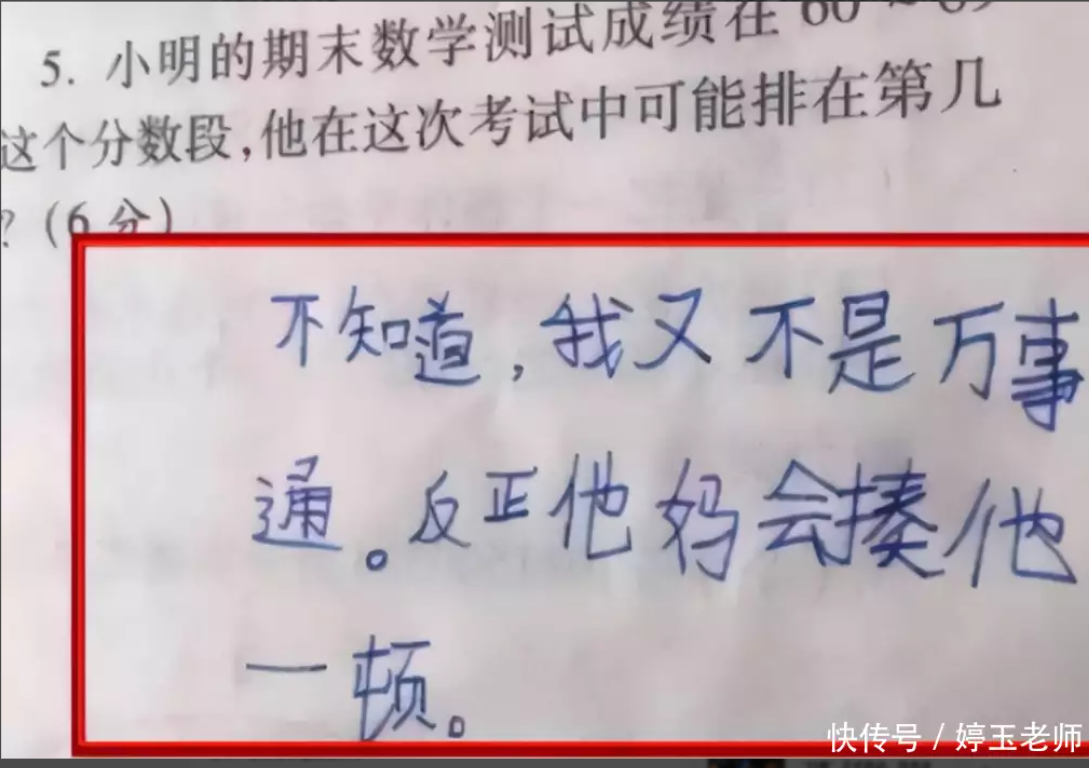 5. 小明的期末数学测试成绩在 60 ~ 69
这个分数段,他在这次考试中可能排在第几
? (6 分)
不知道,我又不是万事
通。反正他妈会揍他
一顿。
快传号 / 婷玉老师